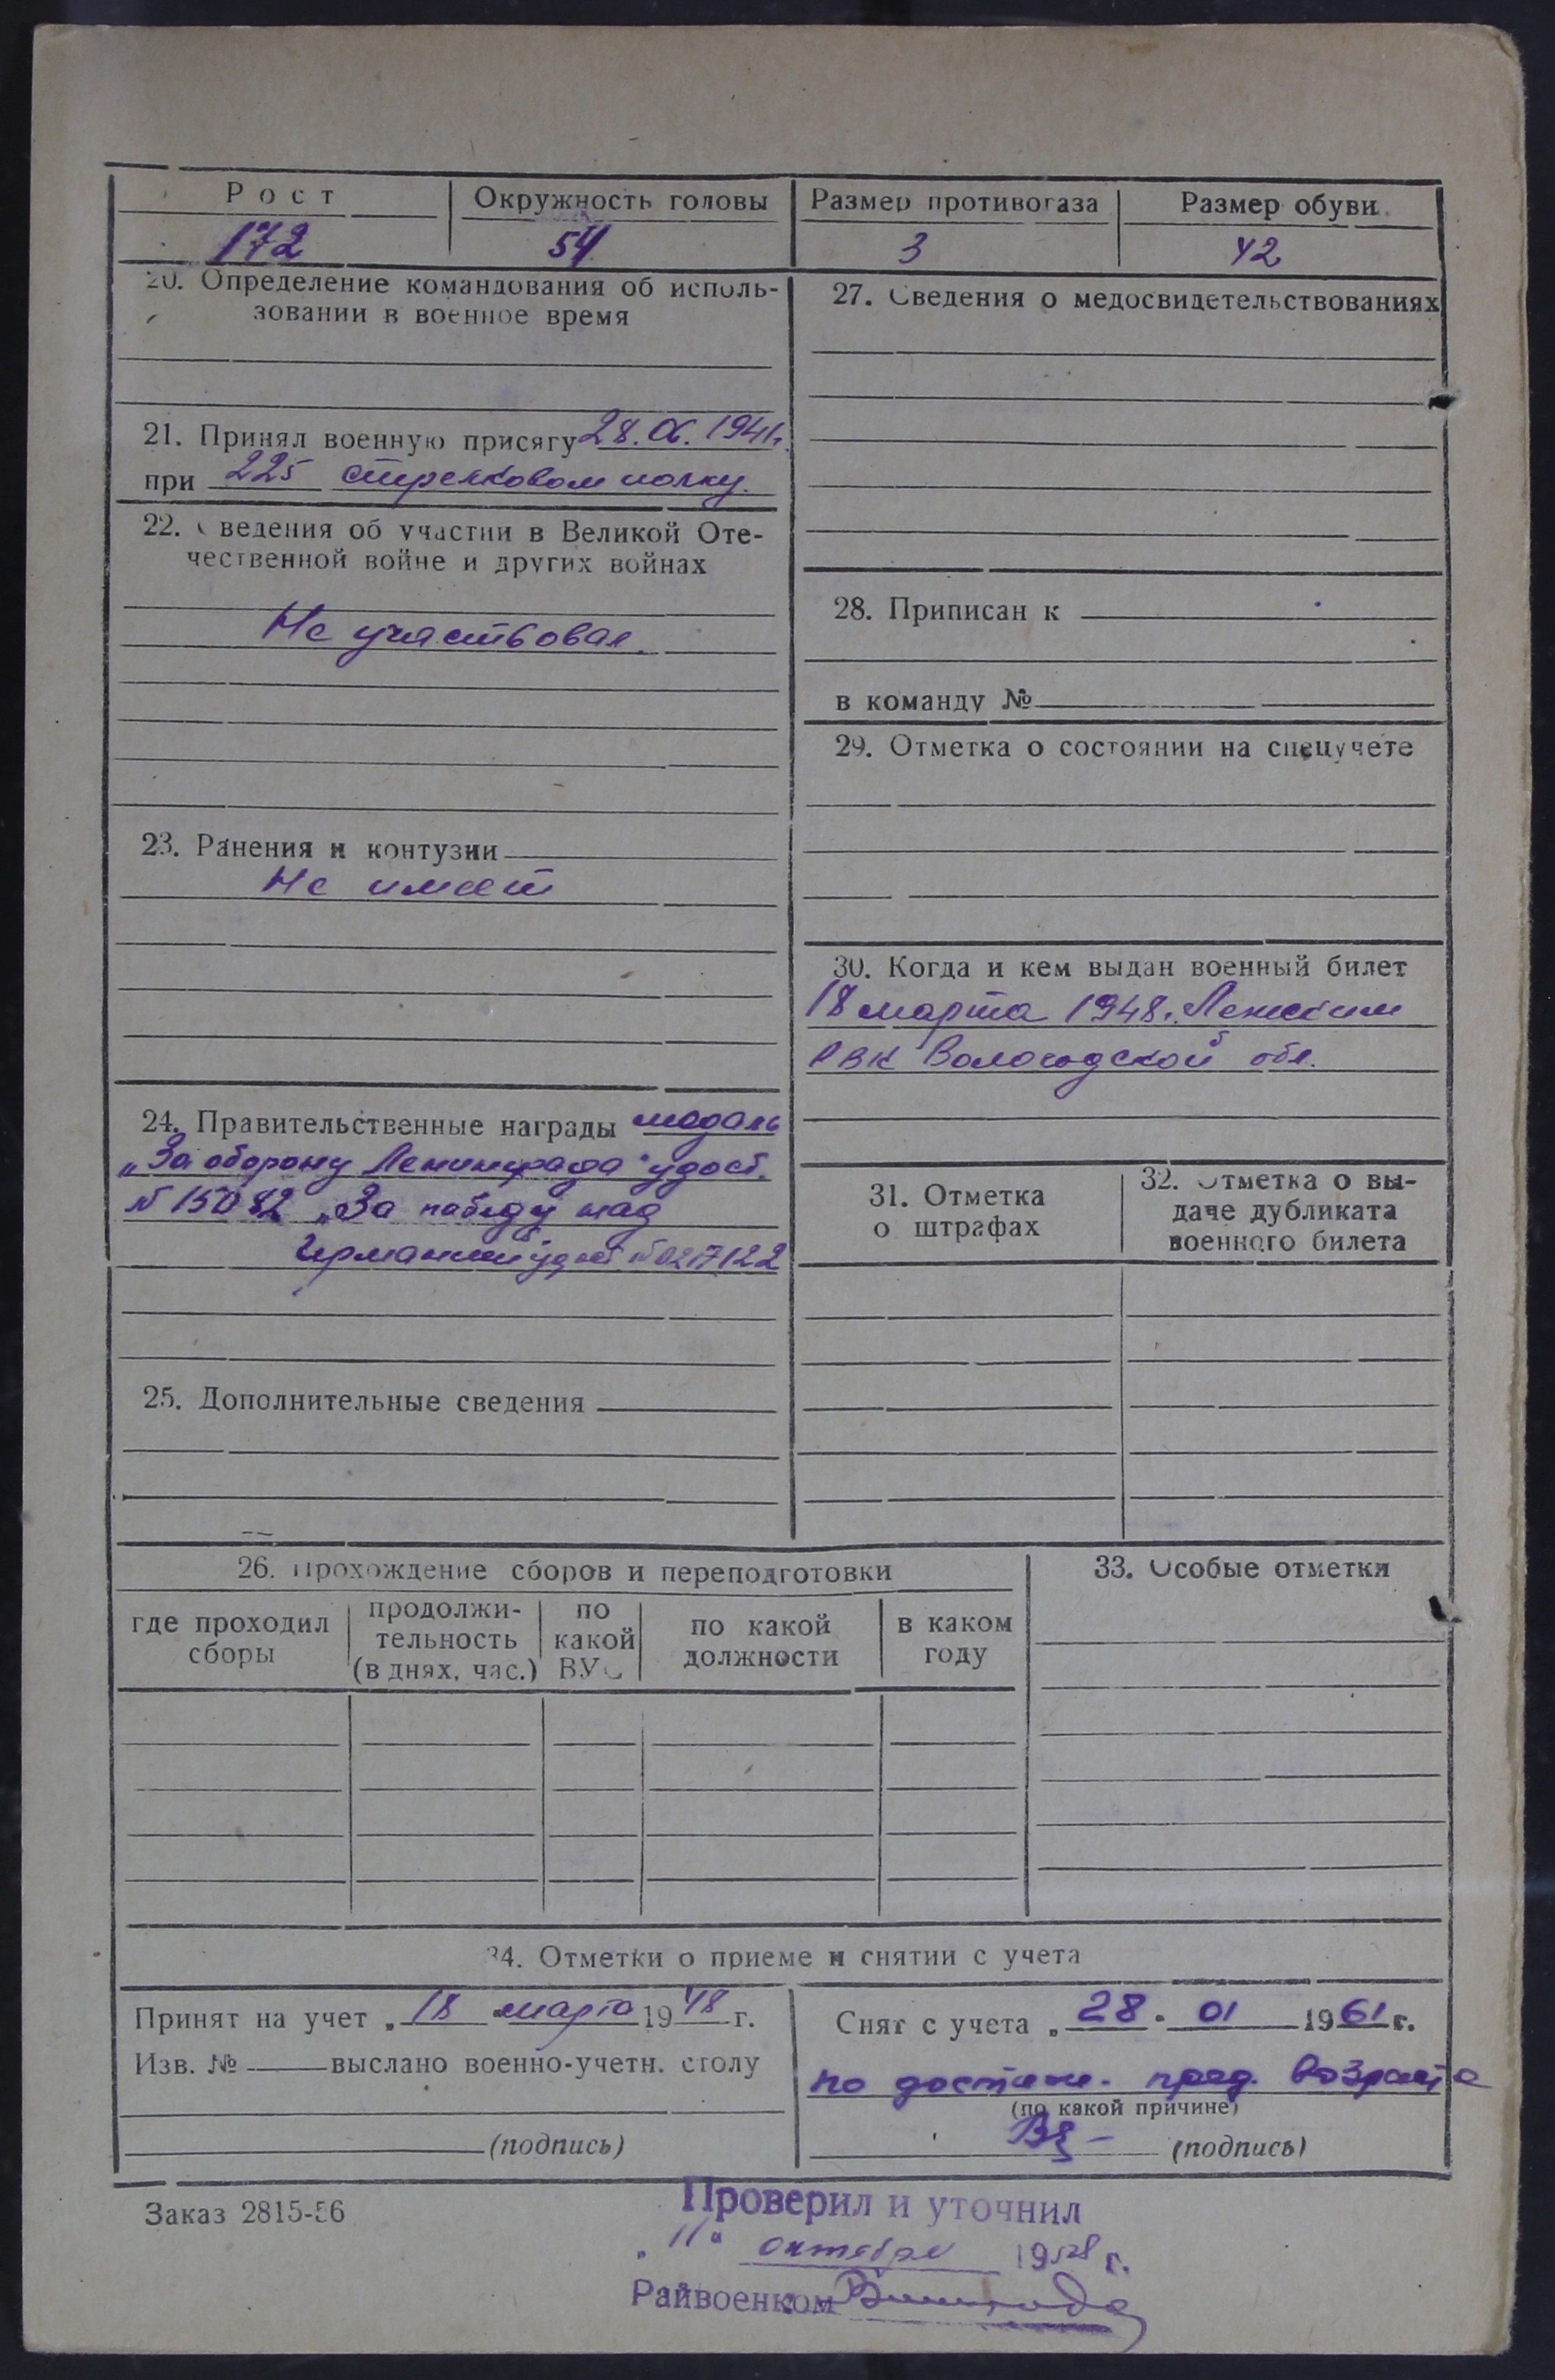 Рост
Окружность головы
Размер противогаза
Размер обуви
172
54
3
42
20. Определение командования об исполь-
зовании в военное время
21. Принял военную присягу 28.06.1941г.
при 225 стрелковом полку.
22. Сведения об участии в Великой Оте-
чественной войне и других войнах
Не участвовал.
23. Ранения и контузии
Не имеет
24. Правительственные награды медаль
„За оборону Ленинграда" удост.
№ 15082 „За победу над
Германией удост. № 0217122
25. Дополнительные сведения
27. Сведения о медосвидетельствованиях
28. Приписан к
в команду №
29. Отметка о состоянии на спецучете
30. Когда и кем выдан военный билет
18 марта 1948г.
РВК Вологодской обл.
31. Отметка
о штрафах
32. Отметка о вы-
даче дубликата
военного билета
26. Прохождение сборов и переподготовки
где проходил
сборы
продолжи-
тельность
(в днях, час.)
по
какой
ВУС
по какой
должности
в каком
году
33. Особые отметки
34. Отметки о приеме и снятии с учета
Принят на учет „ 18 " марта 1948 г.
Изв. № выслано военно-учетн. столу
(подпись)
Снят с учета „ 28 " 01 1961 г.
по достиж. пред. возраста
(по какой причине)
(подпись)
Заказ 2815-56
Проверил и уточнил
„ 11 " октября 1958 г.
Райвоенком